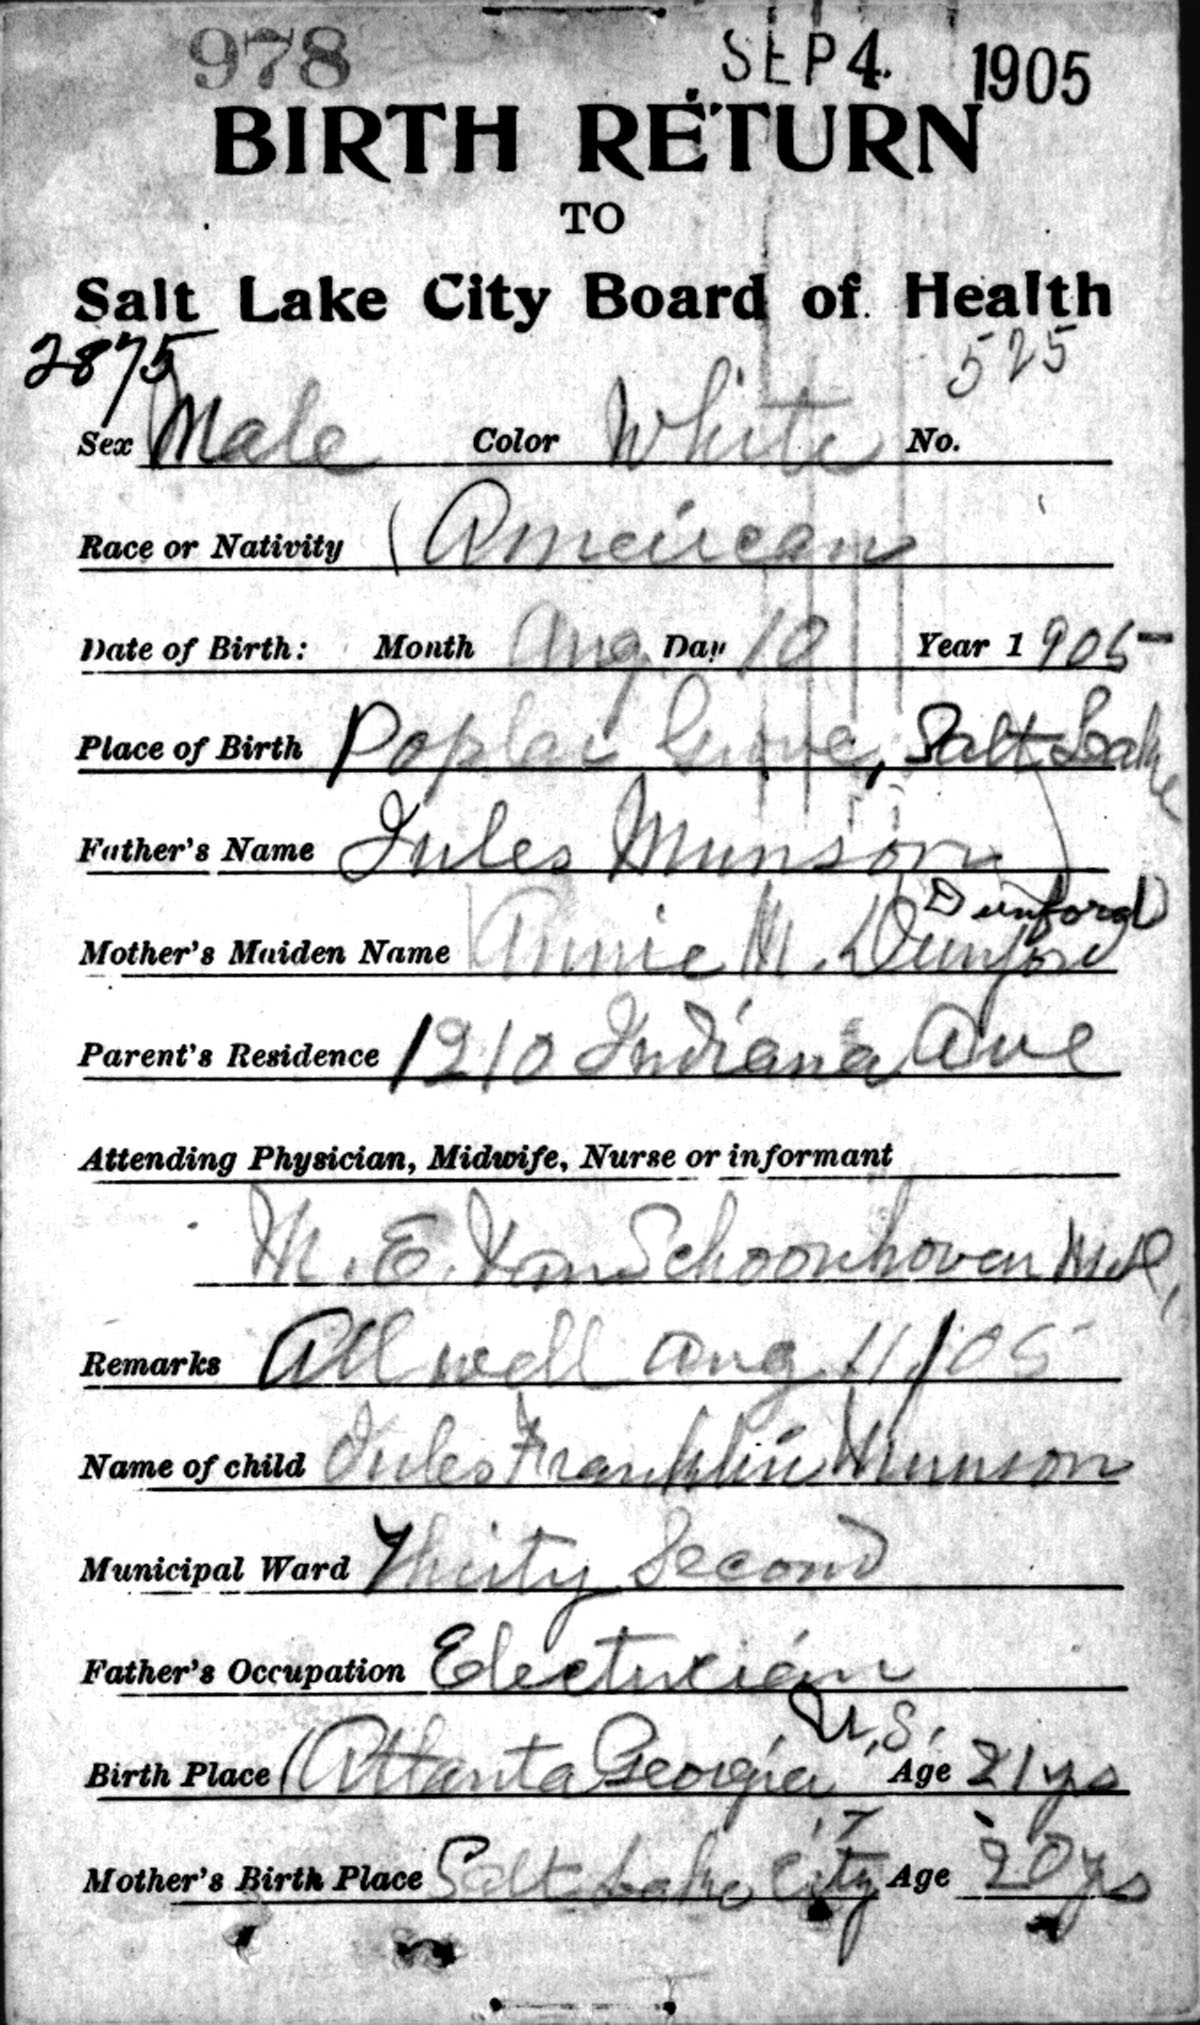 978 SEP 4. 1905
BIRTH RETURN
TO
Salt Lake City Board of Health
2875 525
Sex Male Color White No.
Race or Nativity American
Date of Birth: Month Aug Day 10 Year 1905
Place of Birth Poplar Grove, Salt Lake
Father's Name Jules Munson
Dunford
Mother's Maiden Name Annie M. Dunford
Parent's Residence 1210 Indiana Ave
Attending Physician, Midwife, Nurse or informant
M. E. Van Schoonhoven M.D.,
Remarks All well Aug 11/05
Name of child Jules Franklin Munson
Municipal Ward Thirty Second
Father's Occupation Electrician
U.S.
Birth Place Atlanta Georgia Age 21 ys
Mother's Birth Place Salt Lake City Age 20 ys